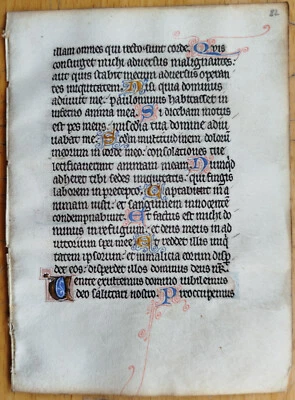 82
illam omnes qui recto sunt corde. Quis
consurget michi adversus malignantes:
aut quis stabit mecum adversus operan
tes iniquitatem. Nisi quia dominus
adiuvit me: paulominus habitasset in
inferno anima mea. Si dicebam motus
est pes meus: misericordia tua domine adiu
vabat me. Secundum multitudinem dolorum
meorum in corde meo: consolationes tue
letificaverunt animam meam. Nunquid
adheret tibi sedes iniquitatis: qui fingis
laborem in precepto. Captabunt in a
nimam iusti: et sanguinem innocentem
condempnabunt. Et factus est michi do
minus in refugium: et deus meus in ad
iutorium spei mee. Et reddet illis iniqui
tatem ipsorum: et in malicia eorum disper
det eos: disperdet illos dominus deus nr.
Venite exultemus domino iubilemus
deo salutari nostro. Preoccupemus